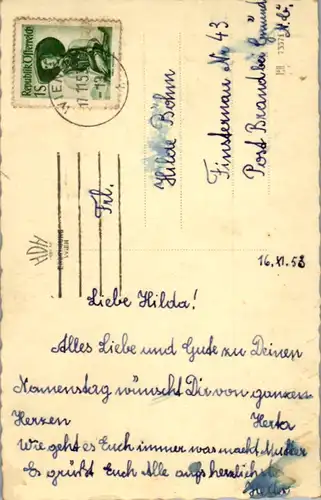 Republik Österreich
1S
WIEN
17.11.5
Frl.
Hilde Böhm
Finsternau Nr 43
Post Brand bei Gmünd
N.Ö.
16.XI.53
Liebe Hilda!
Alles Liebe und Gute zu Deinen
Nammenstag wünscht Dir von ganzen
Herzen Herta
Wie geht es Euch immer was macht Mutter
Es grüßt Euch Alle aufs herzlichste